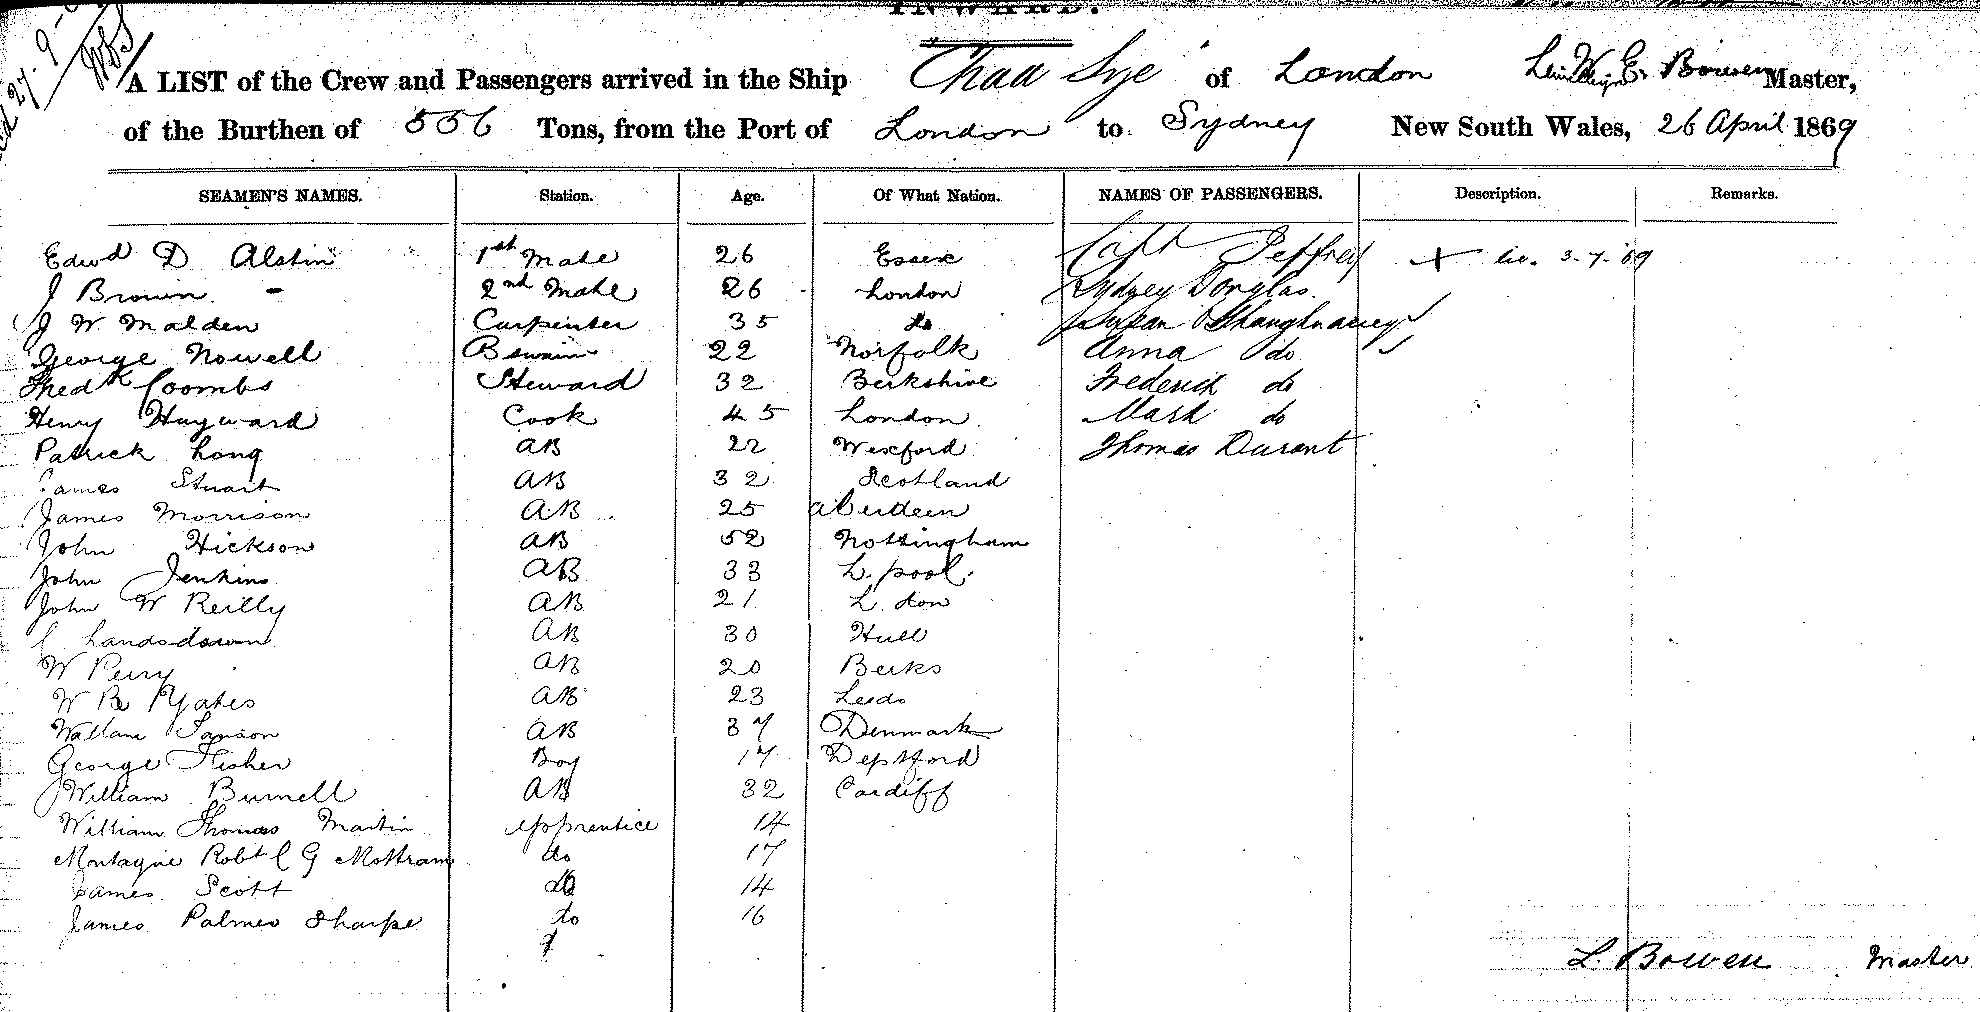 INWARD.
A LIST of the Crew and Passengers arrived in the Ship Chaa Sze of London E. Bowen Master,
of the Burthen of 556 Tons, from the Port of London to Sydney New South Wales, 26 April 1869
SEAMEN'S NAMES. Station. Age. Of What Nation. NAMES OF PASSENGERS. Description. Remarks.
Edwd D Alstin 1st Mate 26 Essex Capt Jeffrey + 3.7.69
J Brown - 2nd Mate 26 London Sydney Douglas
J W Malden Carpenter 35 do Shaughnassey
George Nowell 22 Norfolk Anna do
Fredk Coombs Steward 32 Berkshire Frederick do
Henry Hayward Cook 45 London Mark do
Patrick Long AB 22 Wexford Thomas Durant
James Stuart AB 32 Scotland
James Morrison AB 25 Aberdeen
John Hickson AB 52 Nottingham
John Jenkins AB 33 L. pool.
John W Reilly AB 21 L. don
Landsdown AB 30 Hull
W Perry AB 20 Berks
W B Yates AB 23 Leeds
AB 37 Denmark
George Fisher Boy 17 Deptford
William Burnell AB 32 Cardiff
William Thomas Martin apprentice 14
Montague Robt C G Mottram do 17
James Scott do 14
James Palmer Sharpe do 16
L. Bowen Master